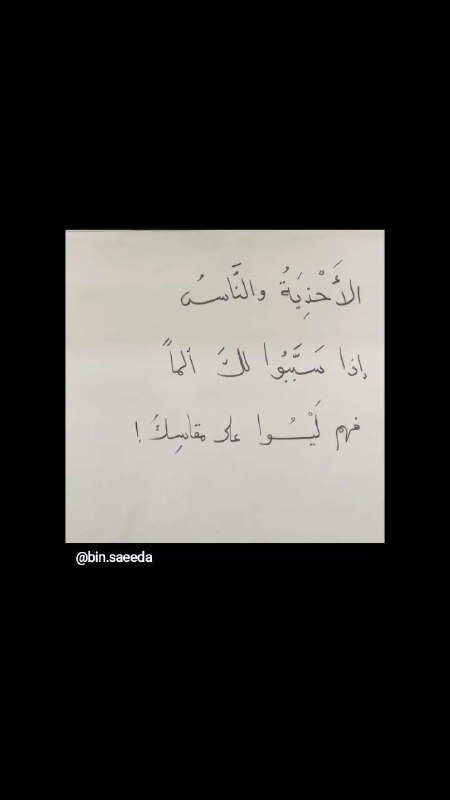 الأَحْذِيَةُ والنَّاسُ
إذا سَبَّبُوا لكَ ألماً
فهم لَيْسُوا على مقاسِكَ !
@bin.saeeda